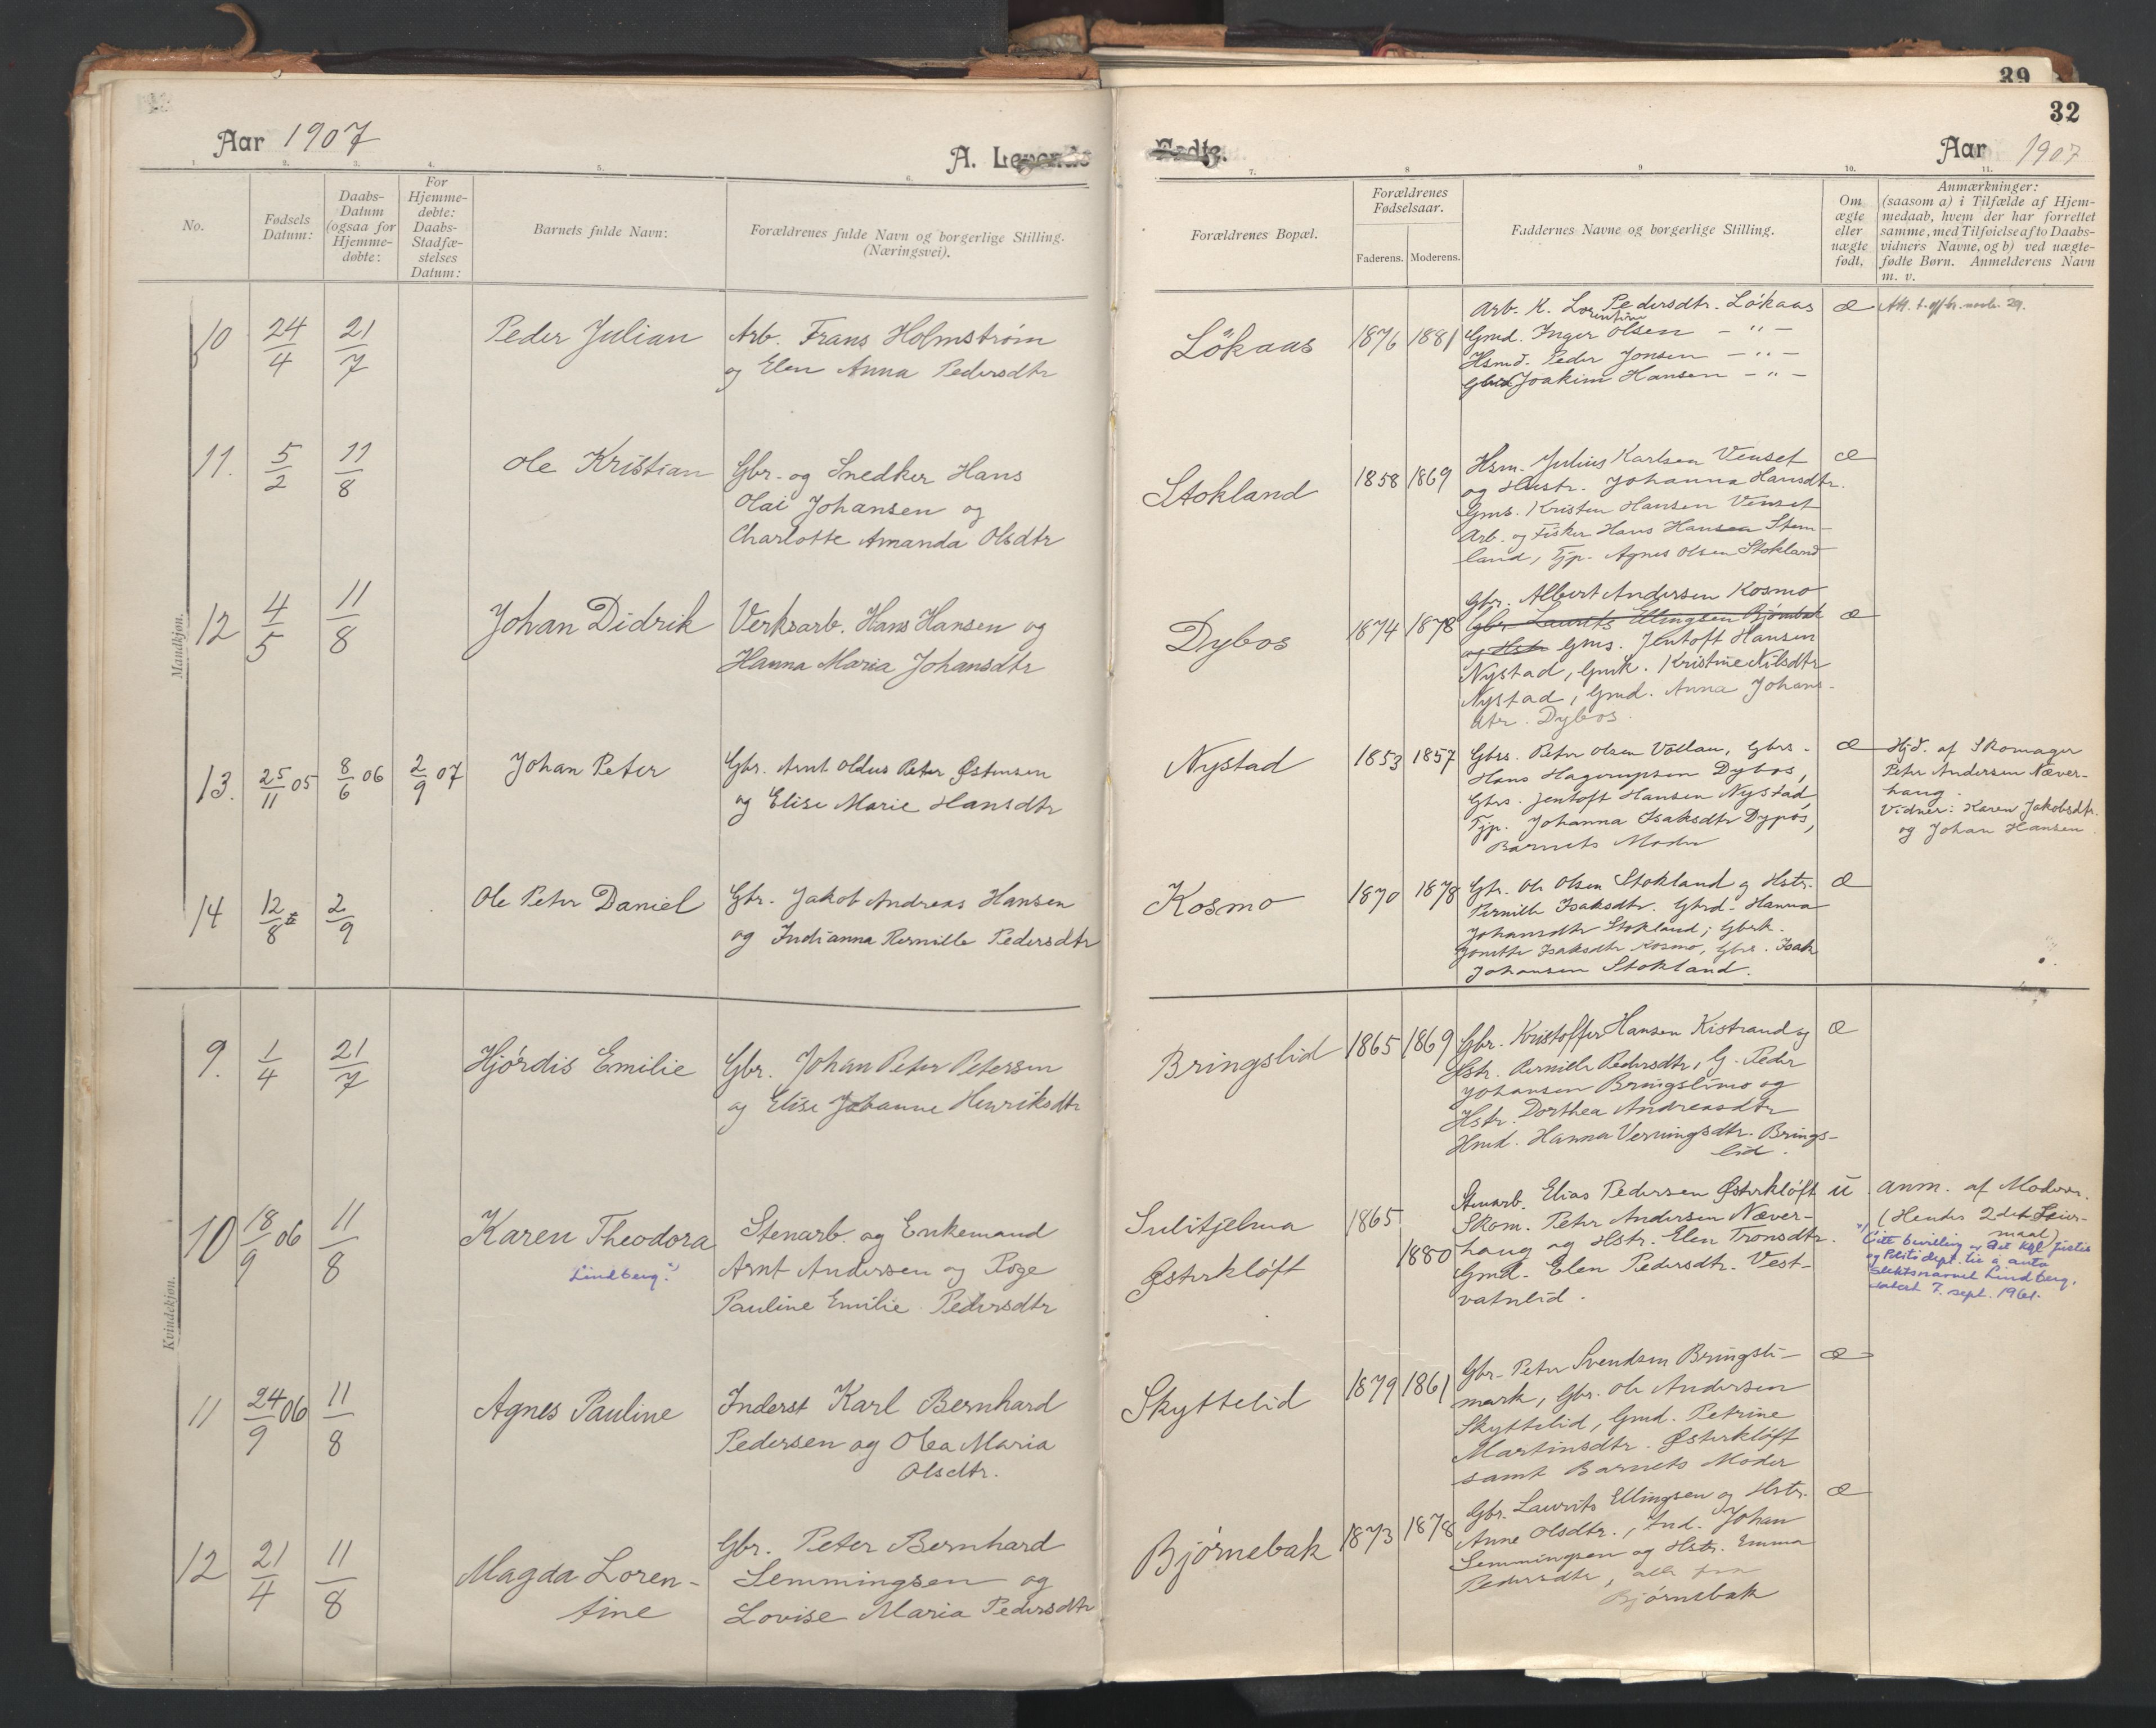 39
32
Aar 1907
A. Levende
Fødte.
Aar 1907
1. 2. 3. 4. 5. 6. 7. 8 9 10. 11.
No.
Fødsels Datum:
Daabs-Datum (ogsaa for Hjemme-døbte:
For Hjemme-døbte: Daabs-Stadfæ-stelses Datum:
Barnets fulde Navn:
Forældrenes fulde Navn og borgerlige Stilling.
(Næringsvei).
Forældrenes Bopæl.
Forældrenes Fødselsaar.
Faderens. Moderens.
Faddernes Navne og borgerlige Stilling.
Om ægte eller uægte født.
Anmærkninger:
(saasom a) i Tilfælde af Hjem-
medaab, hvem der har forrettet
samme, med Tilføielse af to Daabs-
vidners Navne, og b) ved uægte-
fødte Børn. Anmelderens Navn
m. v.
Mandkjøn.
10 24/4 21/7 Peder Julian
Arb. Frans Holmstrøm
og Elen Anna Pedersdtr
Løkaas 1876 1881
Arb. K. Lorentine Pedersdtr. Løkaas
Gmd. Inger Olsen - " -
Hsmd. Peder Jonsen - " -
Gbrd Joakim Hansen - " -
æ
11. 5/2 11/8 Ole Kristian
Gbr. og Snedker Hans
Olai Johansen og
Charlotte Amanda Olsdtr
Stokland 1858 1869
Hsm. Julius Karlsen Venset
og Hustr. Johanna Hansdtr.
Gms. Kristen Hansen Venset
Arb. og Fisker Hans Hansen Stem-
land, Tjp. Agnes Olsen Stokland
æ
12 4/5 11/8 Johan Didrik
Verksarb. Hans Hansen og
Hanna Maria Johansdtr
Dybos 1874 1878
Gbr. Albert Andersen Kosmo
Gbr Laurits Ellingsen Bjørnebak
og Hstr Gms. Jentoft Hansen
Nystad, Gmk. Kristine Nilsdtr
Nystad, Gmd. Anna Johans-
dtr. Dybos.
æ
13. 25/11 05 8/6 06 2/9 07 Johan Peter
Gbr. Arnt Oldus Peter Østensen
og Elise Marie Hansdtr
Nystad 1853 1857
Gbrs. Peter Olsen Vollan, Gbrs.
Hans Hagerupsen Dybos,
Gbrs. Jentoft Hansen Nystad,
Tjp. Johanna Isaksdtr Dypos,
Barnets Moder
æ
Hjd. af Skomager
Peter Andersen Næver-
haug.
Vidner: Karen Jakobsdtr.
og Johan Hansen.
14 12/8 2/9 Ole Peter Daniel
Gbr. Jakob Andreas Hansen
og Indianna Pernille Pedersdtr
Kosmo 1870 1878
Gbr. Ole Olsen Stokland og Hstr.
Pernille Isaksdtr. Gbrd. Hanna
Johansdtr Stokland; Gbrk.
Jonette Isaksdtr Kosmo, Gbrs. Isak
Johansen Stokland.
æ
Kvindekjøn.
9. 1/4 21/7 Hjørdis Emilie
Gbr. Johan Peter Petersen
og Elise Johanne Henriksdtr
Bringslid 1865 1869
Gbr. Kristoffer Hansen Kistrand og
Hstr. Pernille Pedersdtr, G. Peder
Johansen Bringslimo og
Hstr. Dorthea Andreasdtr
Hmd. Hanna Verningsdtr. Brings-
lid.
æ
10 18/9 06 11/8 Karen Theodora
Lindberg. x)
Stenarb. og Enkemand
Arnt Andersen og Pige
Pauline Emilie Pedersdtr
Sulitjelma
Østerkløft
1865
1880
Stenarb. Elias Pedersen Østerkløft
Skom. Peter Andersen Næver-
haug og Hstr. Elen Tronsdtr.
Gmd. Elen Pedersdtr. Vest-
vatnlid.
u
Anm. af Moderen.
(Hendes 2det Leier-
maal)
x) Gitt bevilling av Det kgl. Justis
og Politidept. til å anta
slektsnavnet Lindberg,
datert 7. sept. 1961.
11 24/9 06 11/8 Agnes Pauline
Inderst Karl Bernhard
Pedersen og Olea Maria
Olsdtr.
Skyttelid 1879 1861
Gbr. Peter Svendsen Bringsli-
mark, Gbr. Ole Andersen
Skyttelid, Gmd. Petrine
Martinsdtr. Østerkløft
samt Barnets Moder
æ
12 21/4 11/8 Magda Loren-
tine
Gbr. Peter Bernhard
Lemmingsen og
Lovise Maria Pedersdtr
Bjørnebak 1873 1878
Gbr. Laurits Ellingsen og Hstr.
Anne Olsdtr., Ind. Johan
Lemmingsen og Hstr. Emma
Pedersdtr, alle fra
Bjørnebak
æ